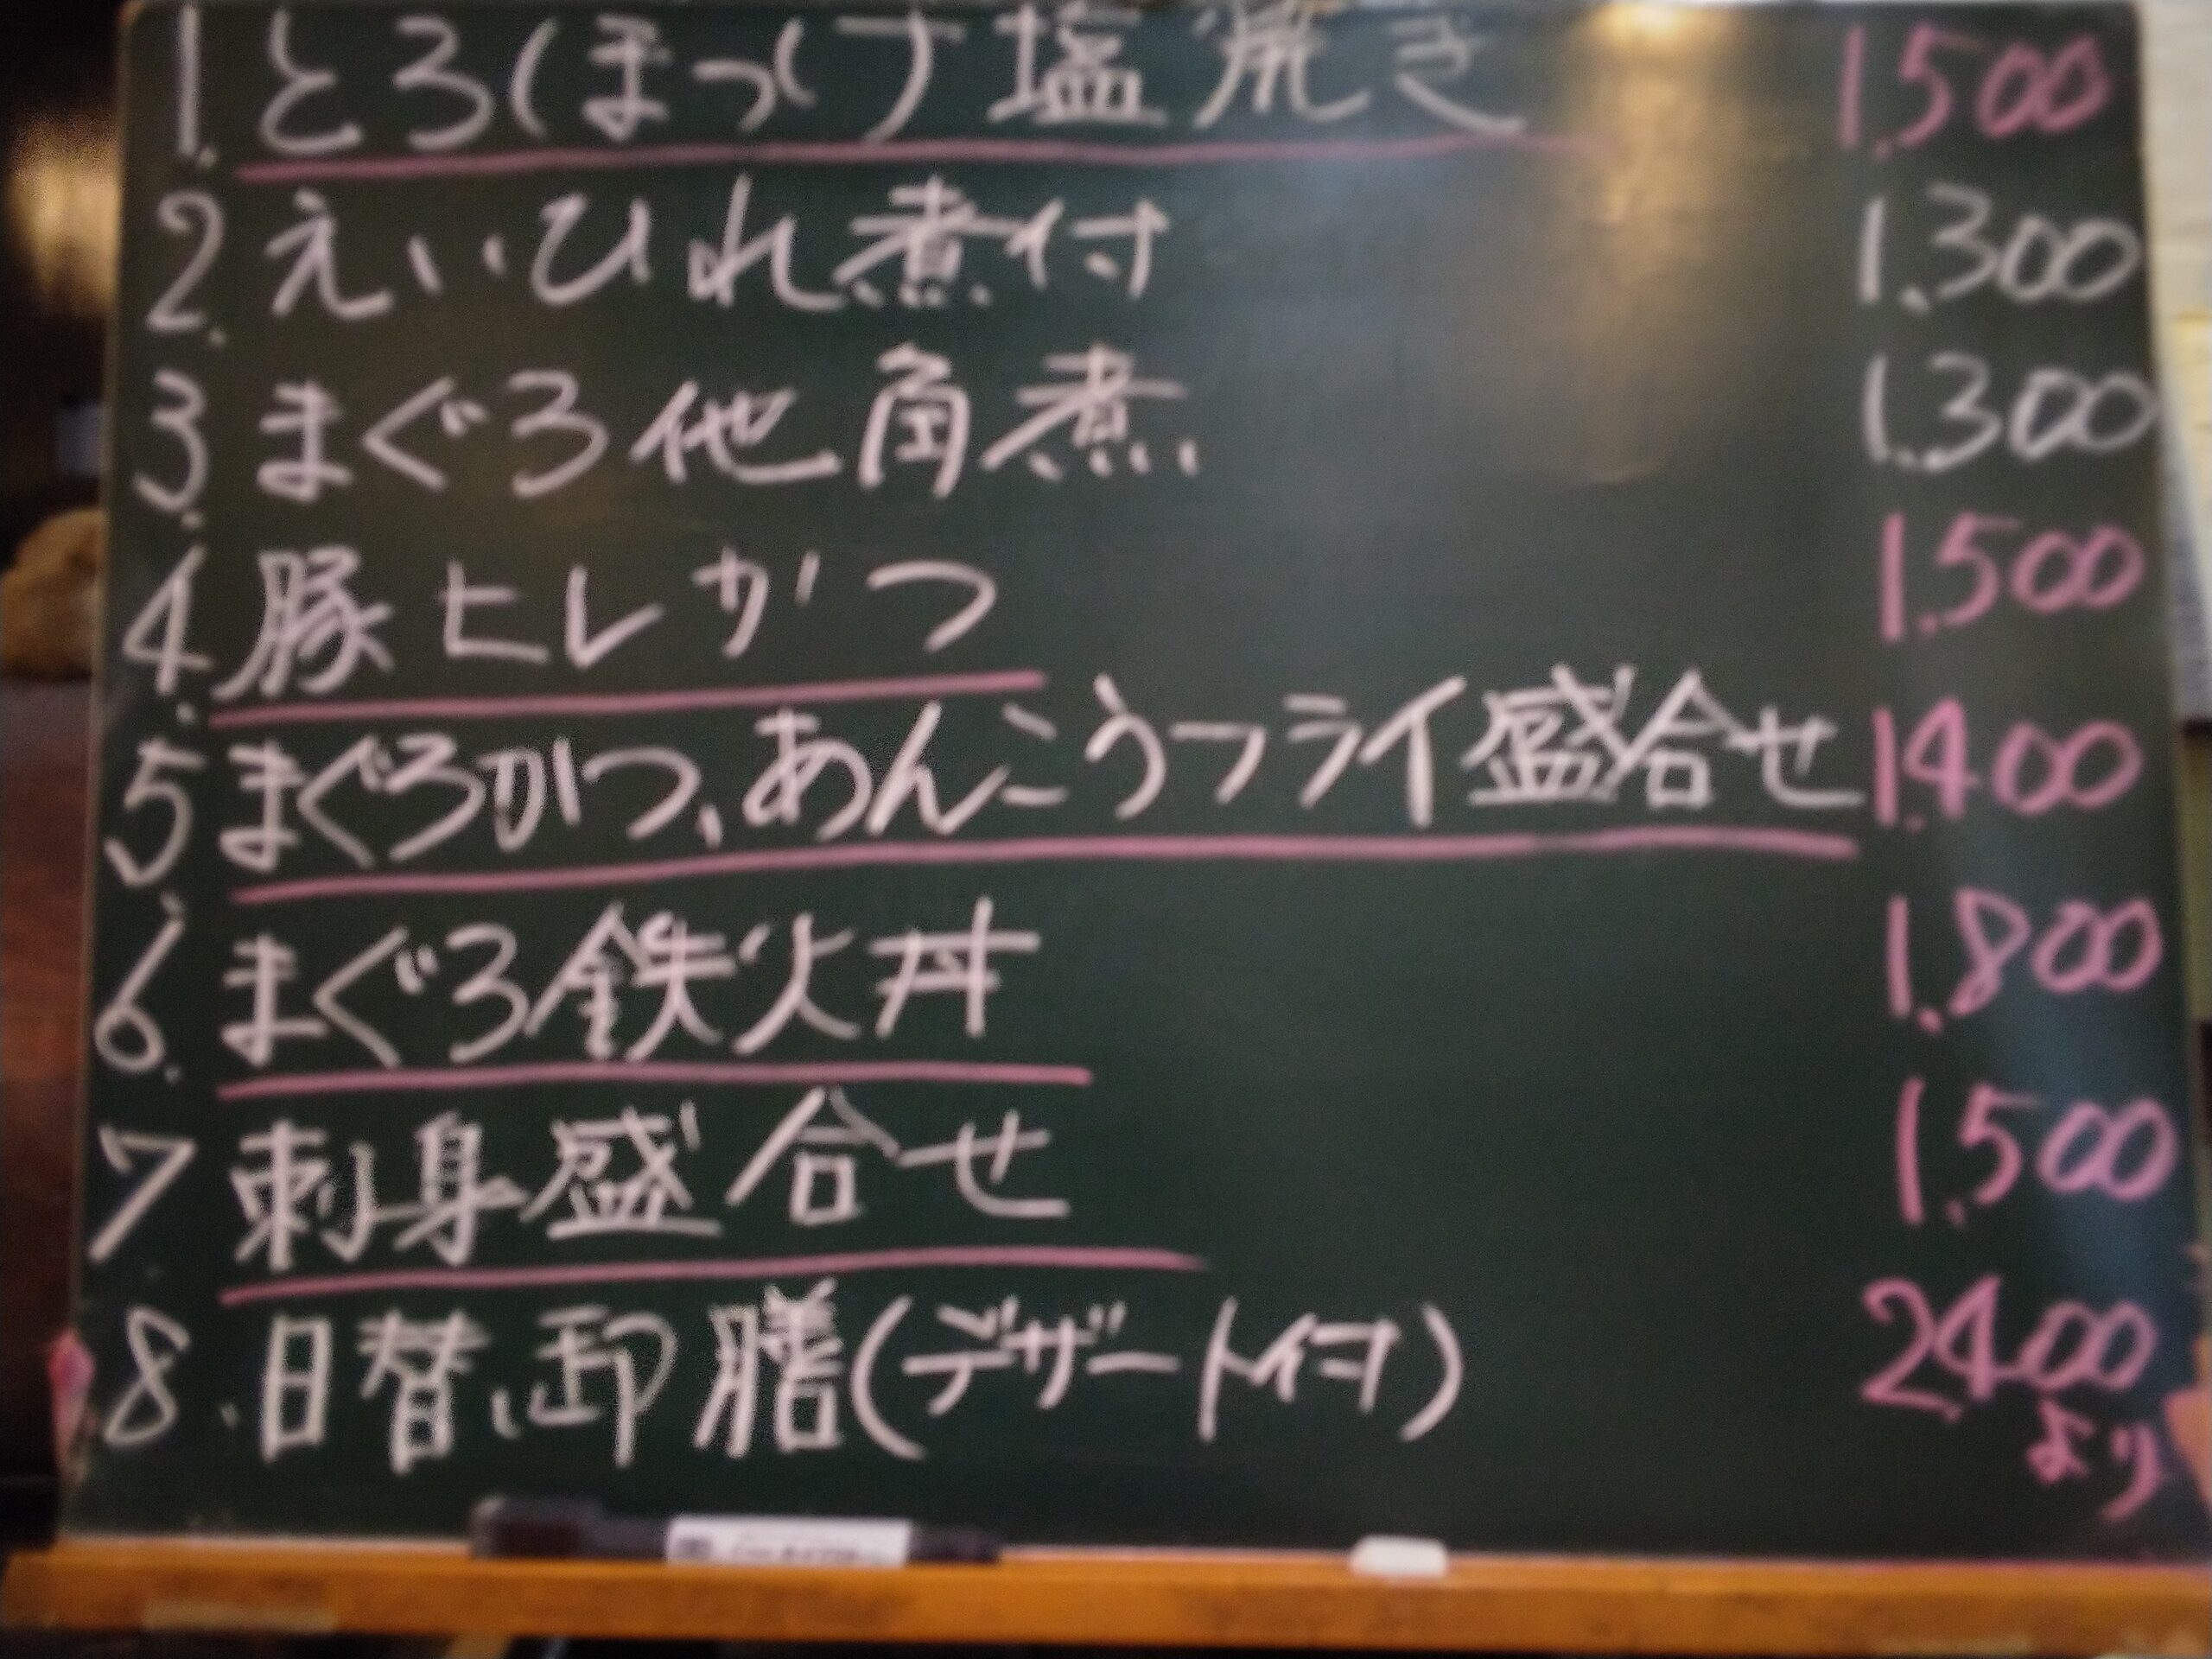 1. とろ(ほっけ)塩焼き 1.500
2. えいひれ煮付 1.300
3. まぐろ他角煮 1.300
4. 豚ヒレかつ 1.500
5. まぐろかつ、あんこうフライ盛合せ 1.400
6. まぐろ鉄火丼 1.800
7 刺身盛合せ 1.500
8. 日替、御膳(デザート付) 2.400
より